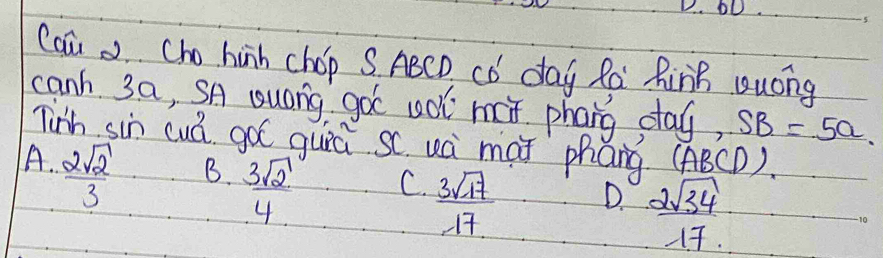 D. 60
Câu 2. Cho hình chóp S.ABCD có đáy là hình vuông
cạnh 3a, SA vuông góc với mặt phẳng đáy, SB = 5a.
Tính sin của góc giữa SC và mặt phẳng (ABCD).
A. 2√2/3 B. 3√2/4 C. 3√17/17 D. 2√34/17.